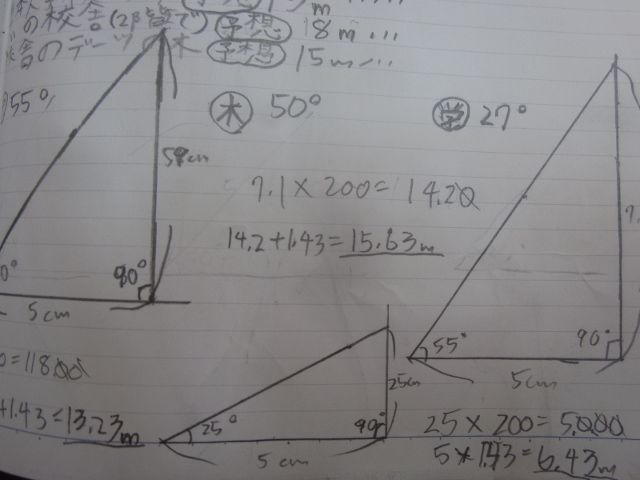 の校舎(2階建て) 予想 18m...
舎のデーツの木 予想 15m...
55°
木 50°
学 27°
59cm
7.1×200=14.20
14.2+1.43=15.63m
90°
5cm
55°
90°
5cm
0=11800
+1.43=13.23m
25°
90°
25cm
5cm
25×200=5.000
5+1.43=6.43m